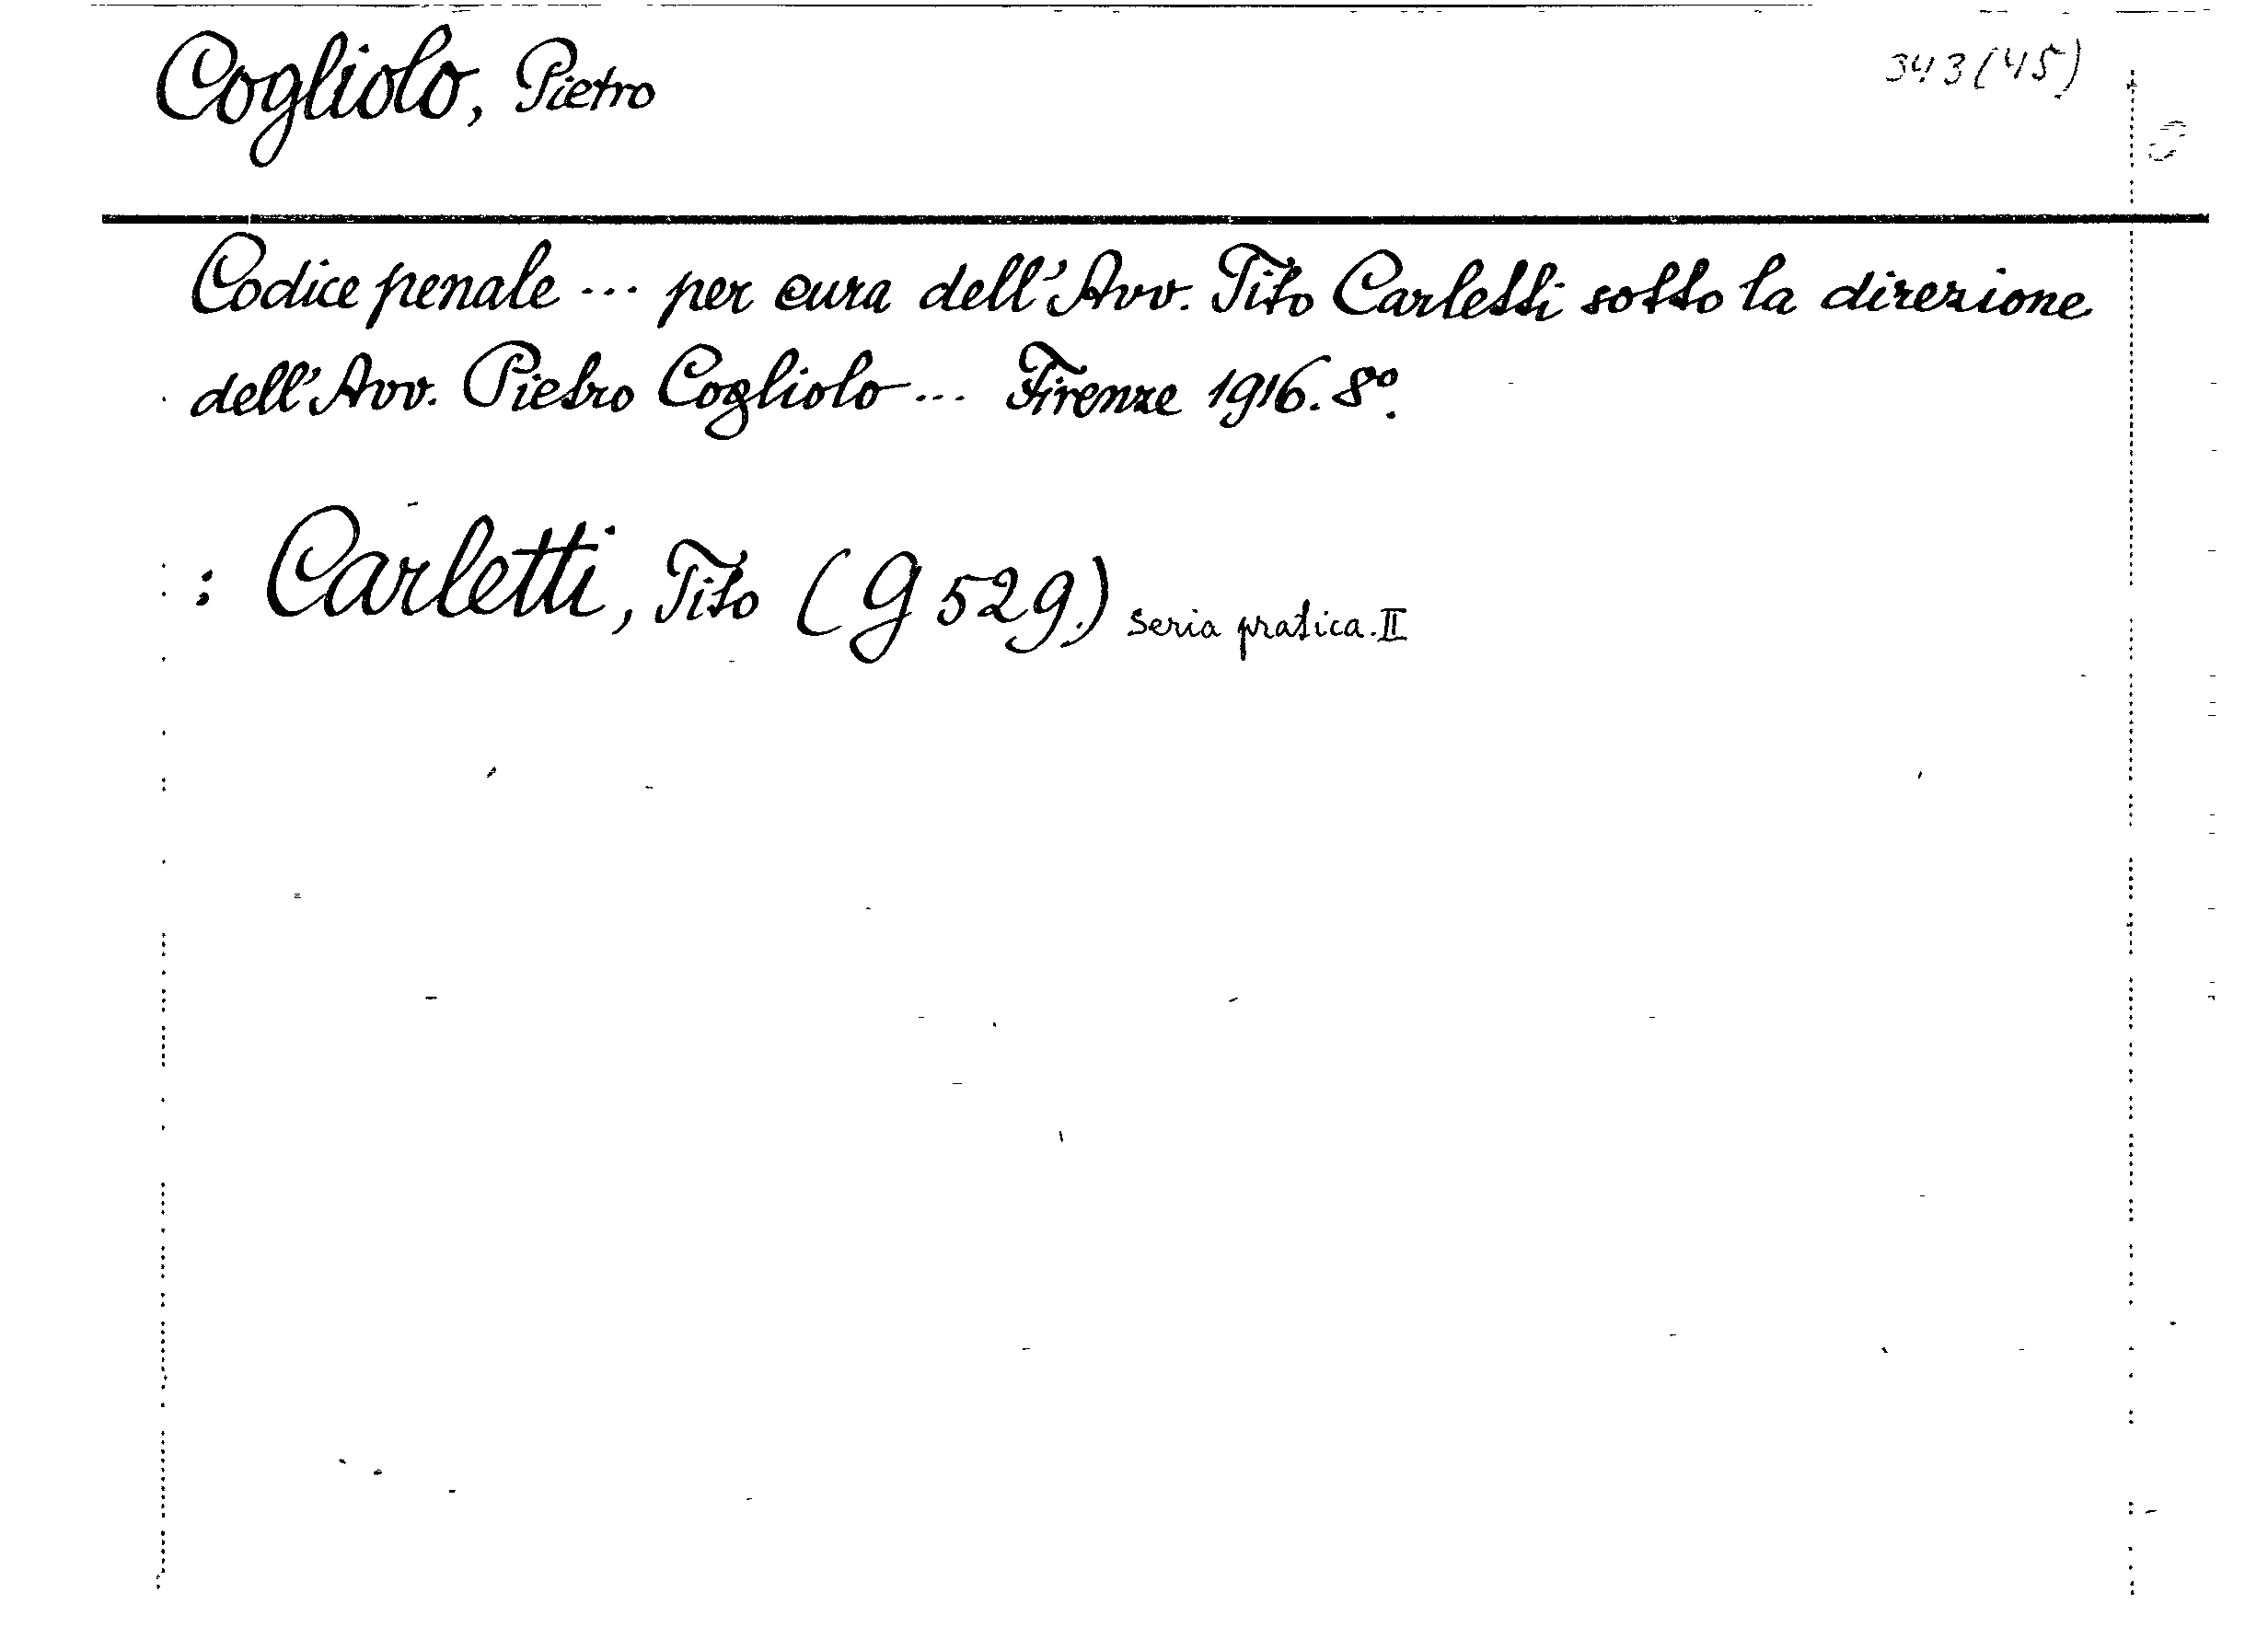 Cogliolo, Pietro
343(45)
Codice penale ... per cura dell'Avv. Tito Carletti sotto la direzione
dell'Avv. Pietro Cogliolo ... Firenze 1916. 8º.
: Carletti, Tito (G 529.) seria pratica. II